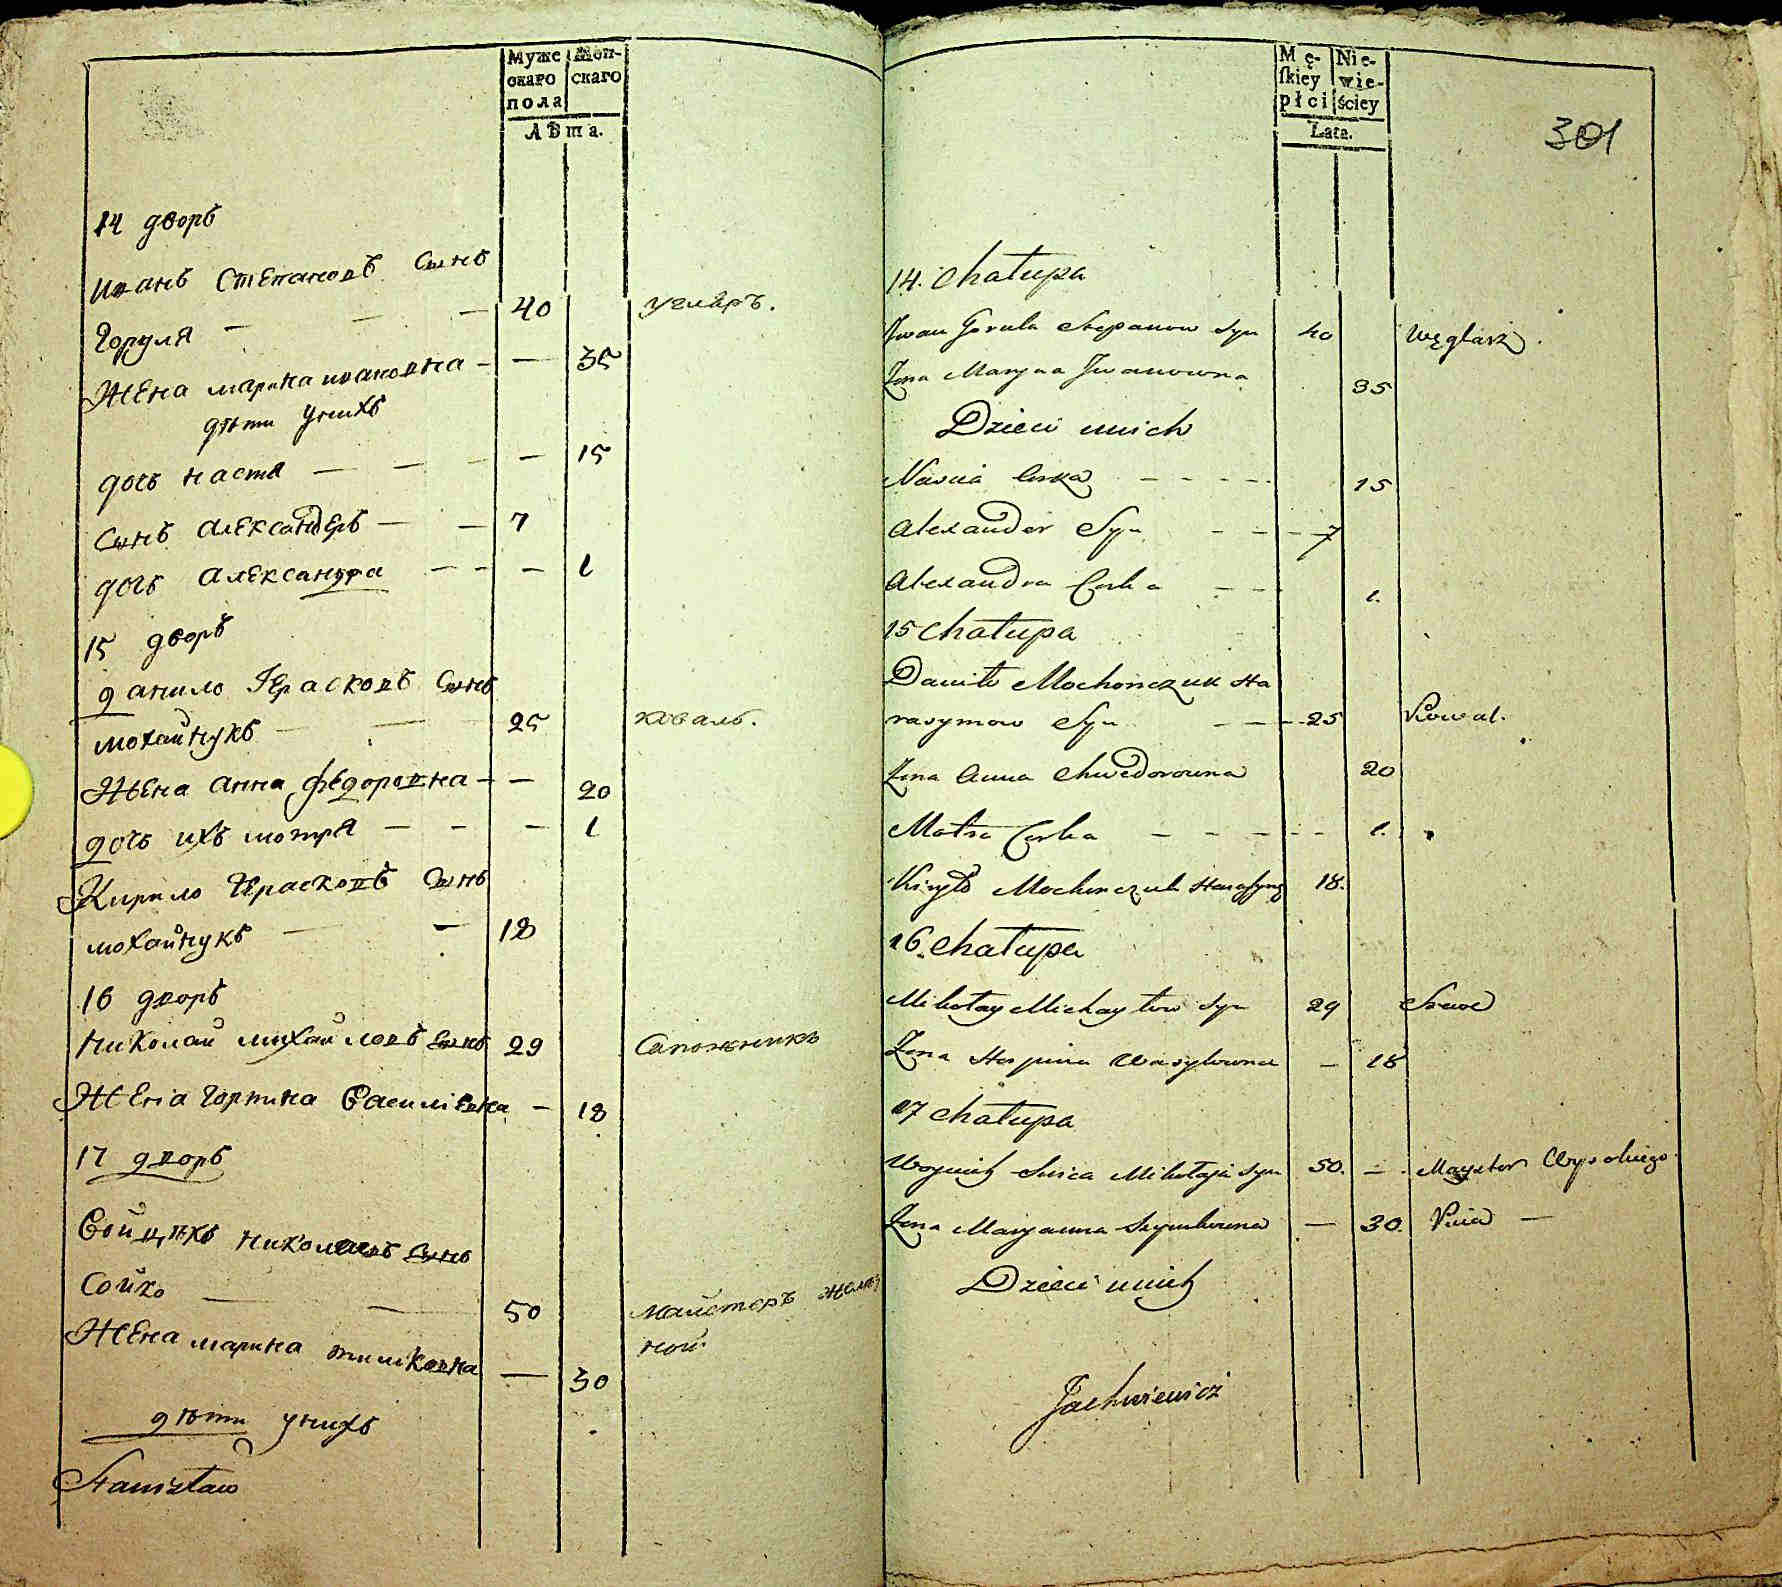 Муже
скаго
пола
Жен-
скаго
Лѣта.
14 дворъ
иванъ Степановъ Сынъ
Горуля — — — 40 угляръ.
Жена марина ивановна — — 35
дѣти унихъ
дочь настя — — — — 15
Сынъ александеръ — — 7
дочь александра — — — 1
15 дворъ
данило Герасковъ Сынъ
мохайчукъ — — 25 коваль.
Жена анна федоровна — — 20
дочь ихъ мотря — — — 1
Кирило Герасковъ Сынъ
мохайчукъ — — 18
16 дворъ
николай михайловъ Сынъ 29 Сапожникъ
Жена горпина Василівна — 18
17 дворъ
Войцѣхъ николаевъ Сынъ
Сойхо — — 50 майстеръ
ной.
Жена марина — 30
дѣти унихъ
Stanisław
Mę-
ſkiey
płci
Nie-
wie-
ściey
Lata.
301
14. Chałupa
Jwan Gorula Stepanow Syn 40 Węglarz.
Żona Maryna Jwanowna 35
Dzieci unich
Nascia Corka - - - - 15
Alexander Syn - - - 7
Alexandra Corka - - - 1.
15 Chałupa
Daniło Mochonczuk Ha
rasymow Syn - - - 25 Kowal.
Żona Anna Chwedorowna 20
Motra Corka - - - - - 1.
Kiryło Mochonczuk 18.
16. Chałupa
Mikołay Michayłow Syn 29 Szewc
Żona Horpina Wasylowna — 18
17 Chałupa
Woyciech Mikołaja Syn 50. — Mayster Wysokiego
Żona Maryanna — 30. Pieca —
Dzieci unich
Jachniewicz